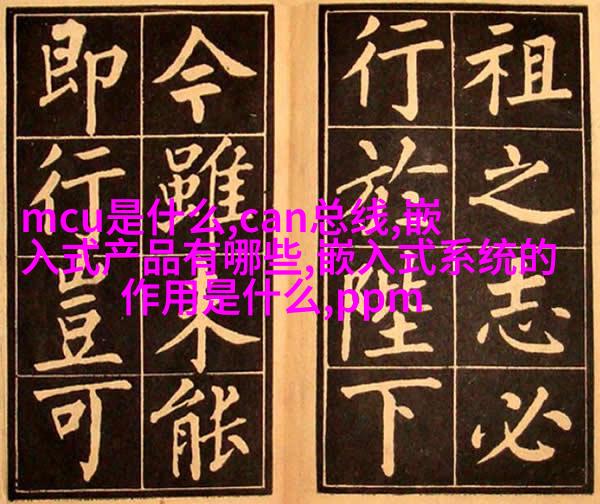 祖之志必
行於陛下
今雖未能
即行豈可
mcu是什么,can总线,嵌
入式产品有哪些,嵌入式系统的
作用是什么,ppm